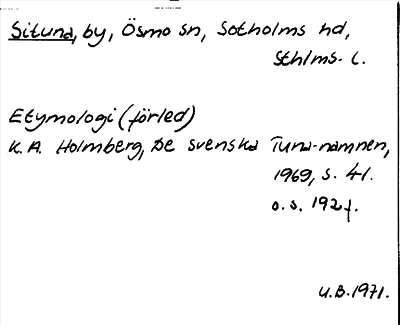 Situna, by, Ösmo sn, Sotholms hd,
Sthlms. l.
Etymologi (förled)
K.A. Holmberg, De svenska Tuna-namnen,
1969, s. 41.
o.s. 192 f.
U.B. 1971.